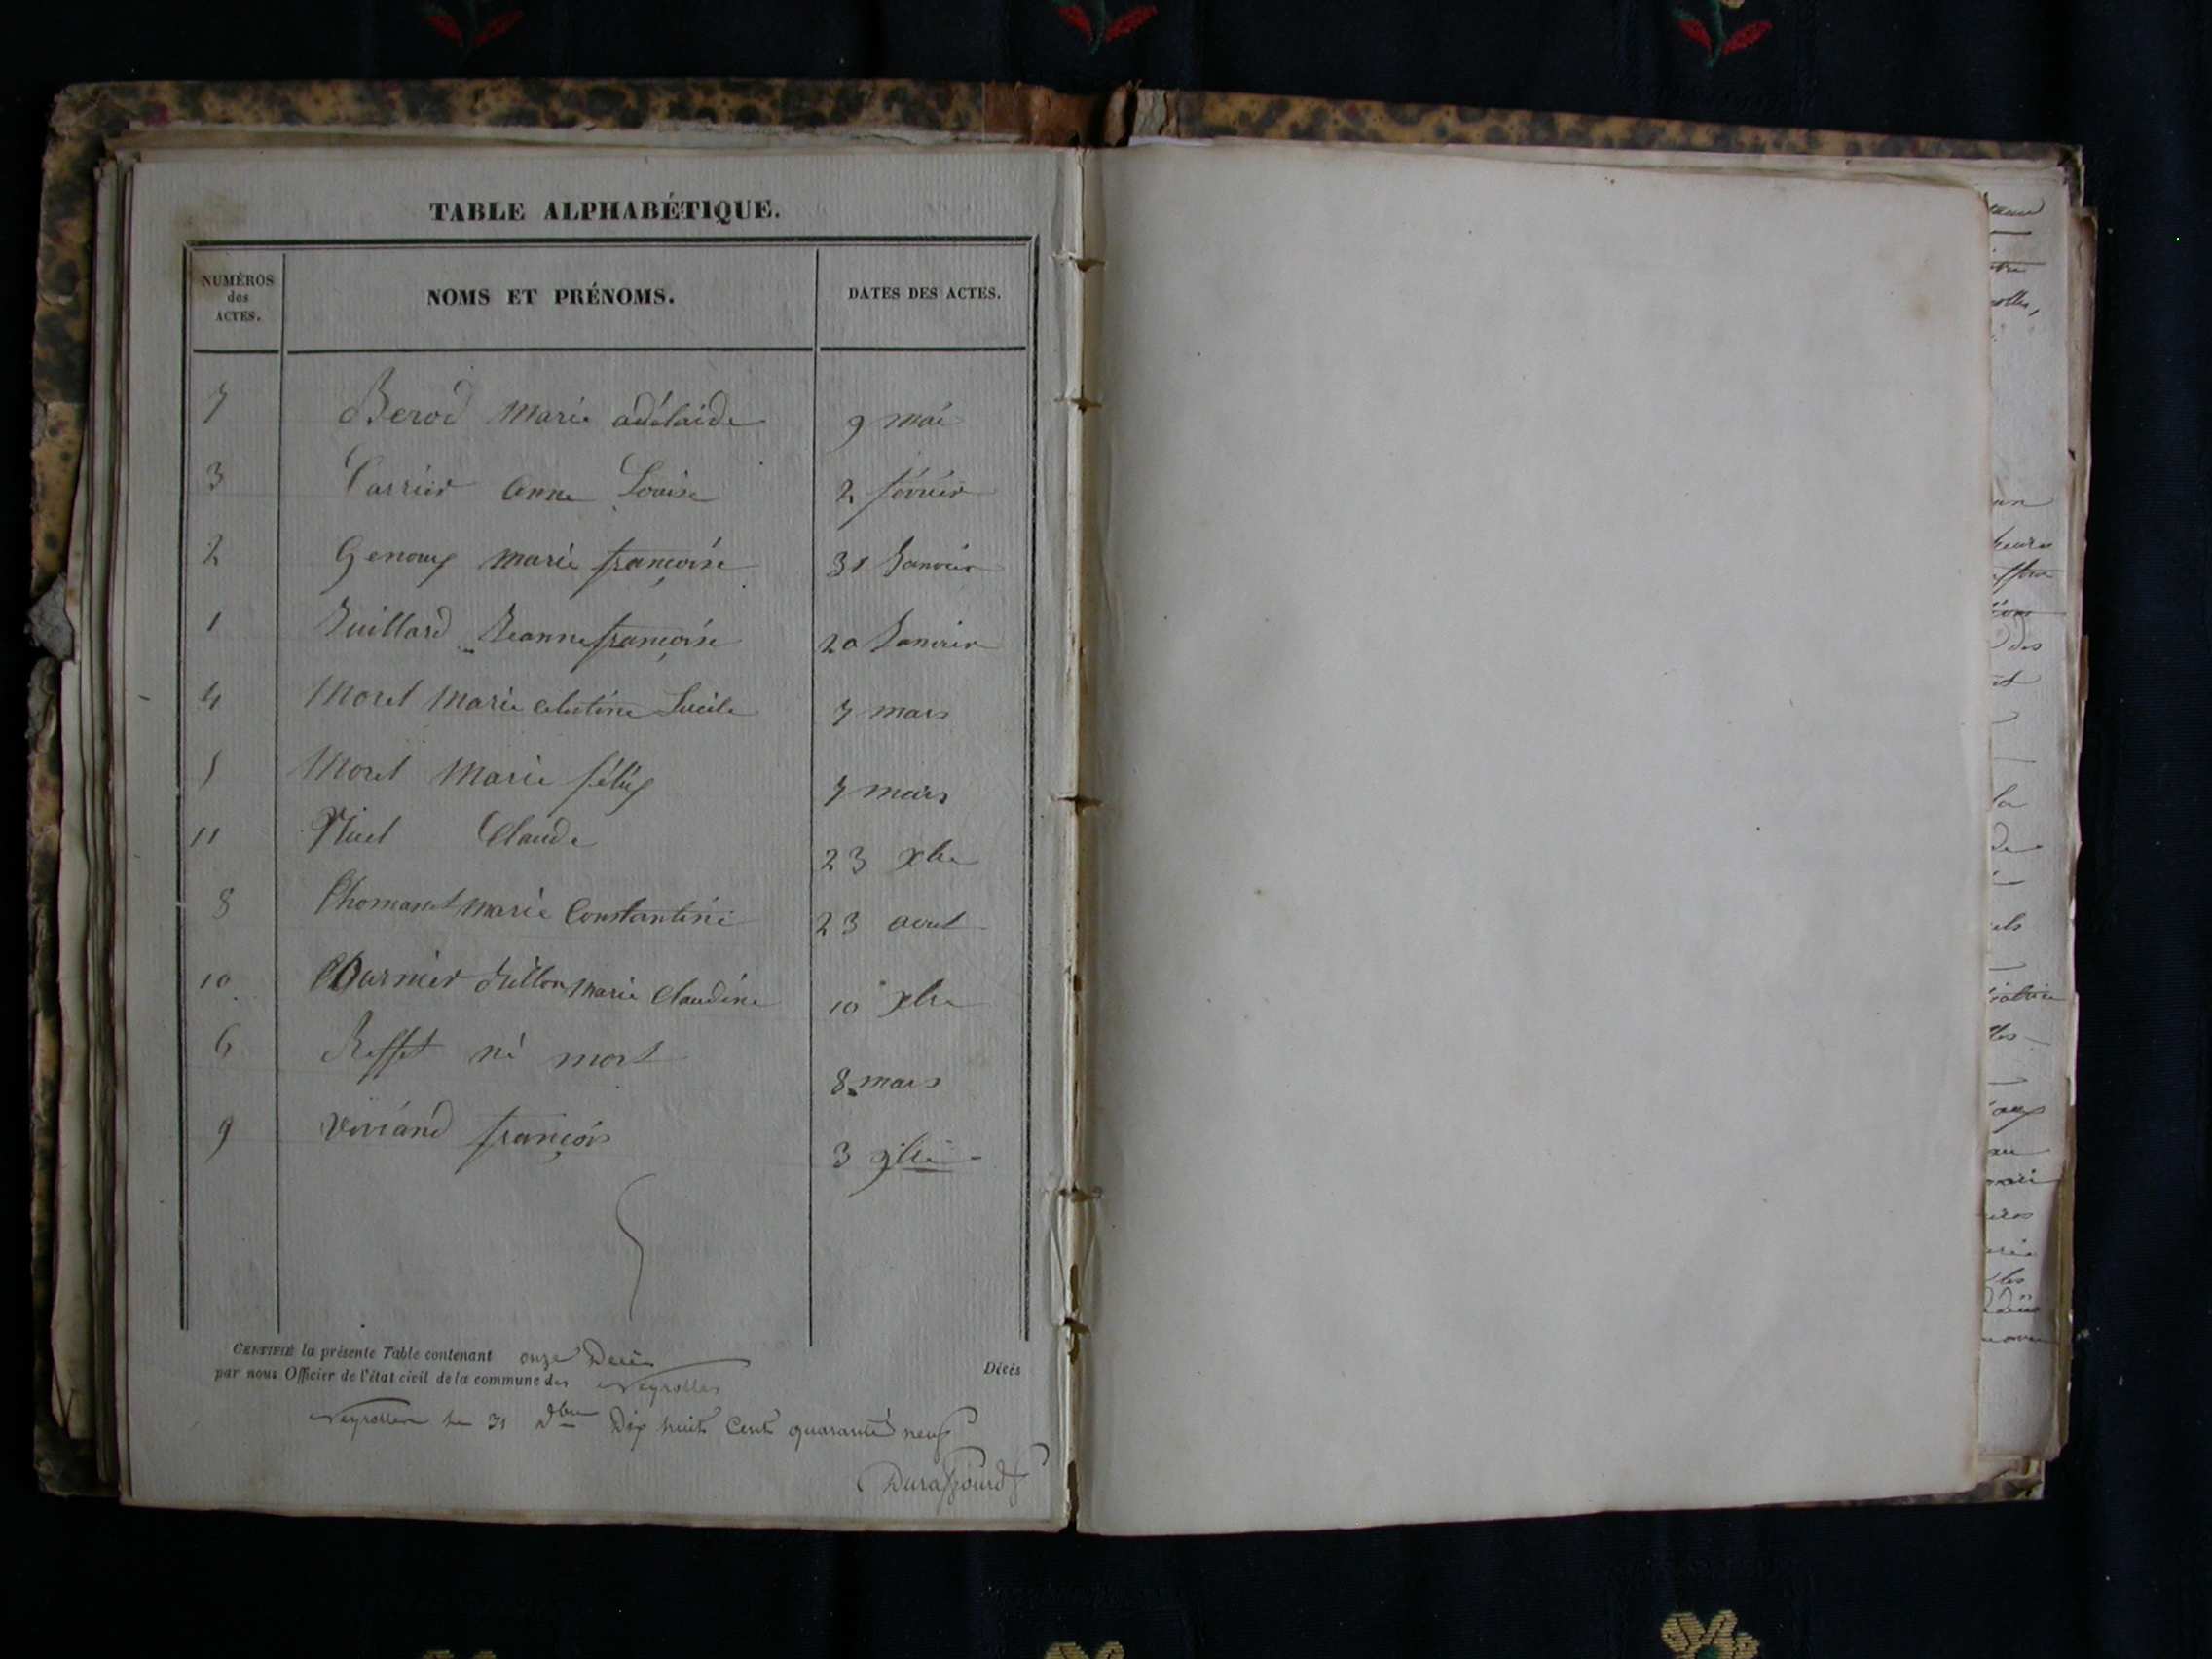 TABLE ALPHABÉTIQUE.
NUMÉROS des ACTES. NOMS ET PRÉNOMS. DATES DES ACTES.
7 Berod Marie adélaide 9 mai
3 Carrier Anne Louise 2 février
2 Genoux Marie françoise 31 Janvier
1 Juillard Jeanne françoise 20 Janvier
4 Morel Marie celestine Lucile 7 mars
5 Morel Marie félix 7 mars
11 Claude 23 xbre
8 Marie Constantine 23 aout
10 Marie Claudine 10 xbre
6 Reffet né mort 8 mars
9 Viviand françois 3 9bre
CERTIFIÉ la présente Table contenant onze Décès Décès
par nous Officier de l'état civil de la commune des Neyrolles
Neyrolles le 31 Dbre Dix huit Cent quarante neuf
Duraffourd